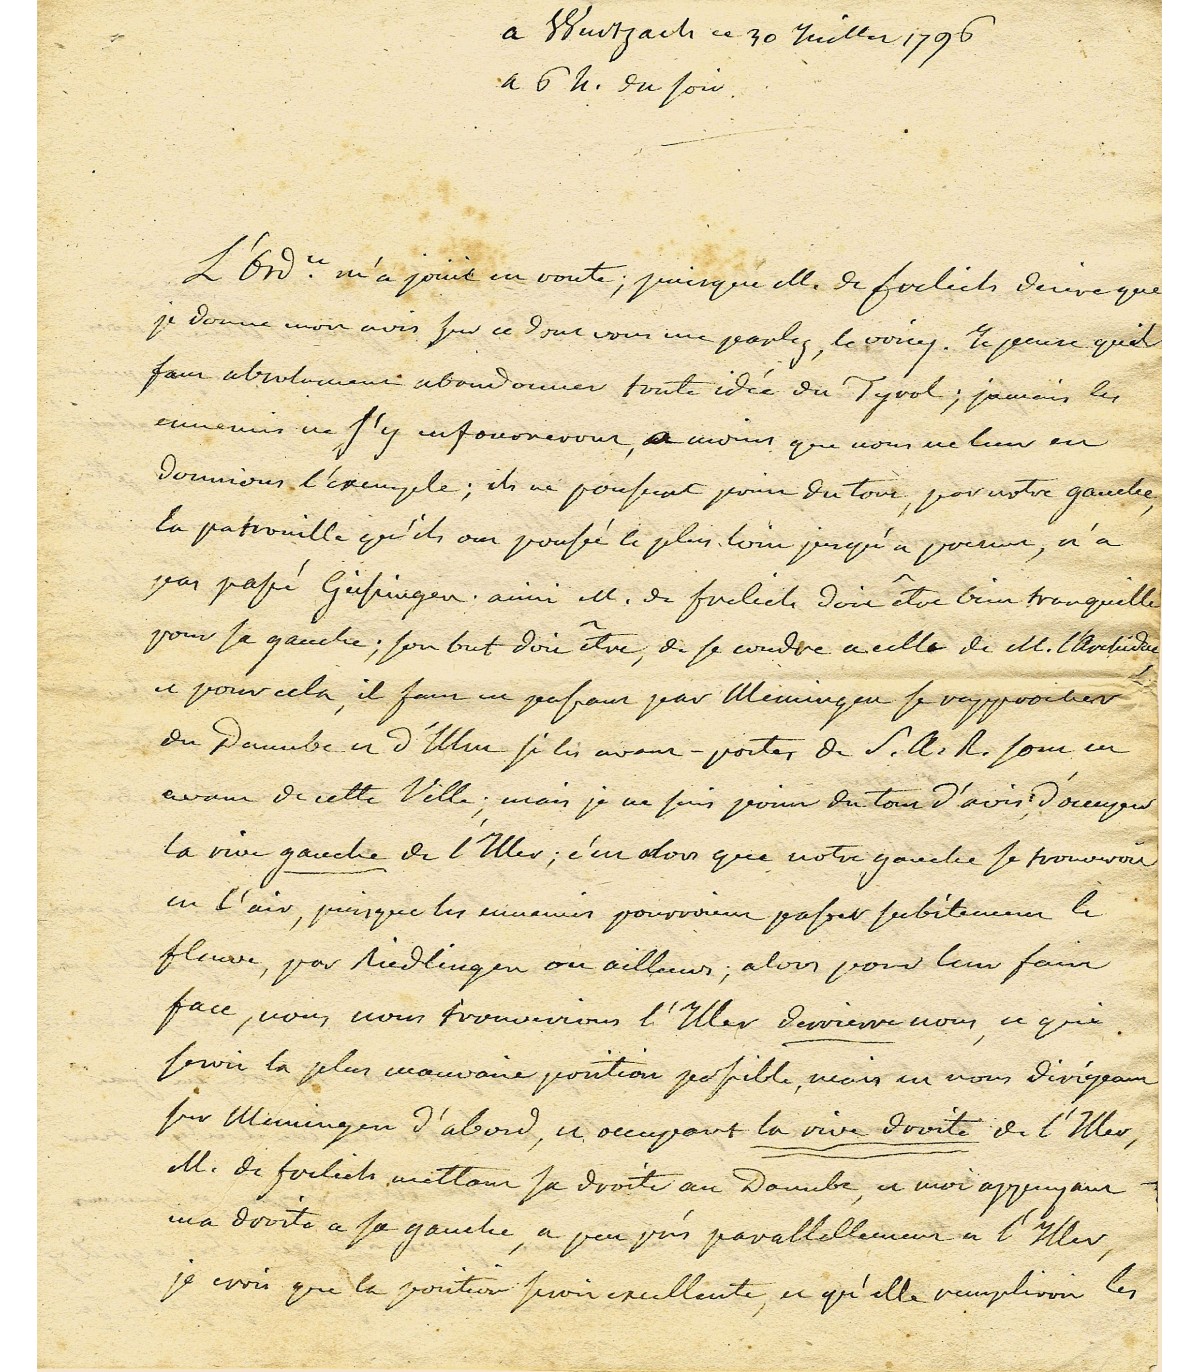 a Wurtzach ce 30 Juillet 1796
a 6 h. du soir.
L'Ord.ce m'a joint en route; puisque M. de frelich desire que
je donne mon avis sur ce dont vous me parlez, le voicy. Je pense qu'il
faut absolument abandonner toute idée du Tyrol; jamais les
ennemis ne s'y enfourneront, a moins que nous ne leur en
donnions l'exemple; ils ne poussent point du tout, par notre gauche,
la patrouille qu'ils ont poussé le plus loin jusqu'a present, n'a
pas passé Gisingen. ainsi M. de frelich doit être bien tranquille
pour sa gauche; son but doit être, de se coudre a celle de M. l'Archiduc
et pour cela, il faut en passant par Memingen se rapprocher
du Danube et d'Ulm si les avant-postes de S. A. R. sont en
avant de cette Ville; mais je ne suis point du tout d'avis d'occuper
la rive gauche de l'Iller; c'est alors que notre gauche se trouveroit
en l'air, puisque les ennemis pourroient passer subitement le
fleuve, par Riedlingen ou ailleurs; alors pour leur faire
face, nous nous trouverions l'Iller derrierre nous, ce qui
seroit la plus mauvaise position possible, mais en nous dirigeant
sur Memingen d'abord, et occupant la rive droite de l'Iller,
M. de frelich mettant sa droite au Danube, et moi appuyant
ma droite a sa gauche, a peu près parallellement a l'Iller,
je crois que la position seroit excellente, et qu'elle rempliroit les